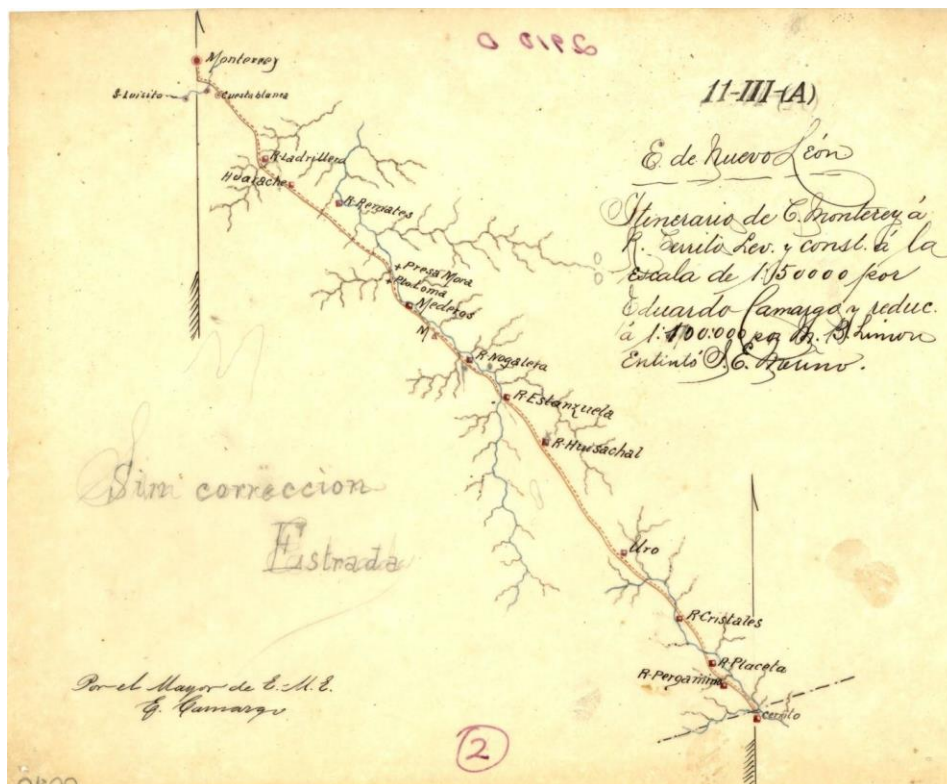 11-III-(A)
E. de Nuevo León
Itinerario de C. Monterey á
R. Cerrito Lev. y const. á la
Escala de 1:50000 por
Eduardo Camargo y reduc.
á 1:100:000 por M. B. Limon
Entintó
Monterrey
S. Luisito
Cuestablanca
R. Ladrillera
Huarache
R. Rergates
Presa Mora
Paloma
Mederos
M
R. Nogalera
R. Estanzuela
R. Huisachal
Uro
R. Cristales
R. Placeta
R. Pergamino
Cerrito
Sin correccion
Estrada
Por el Mayor de E. M. E.
E. Camargo
2